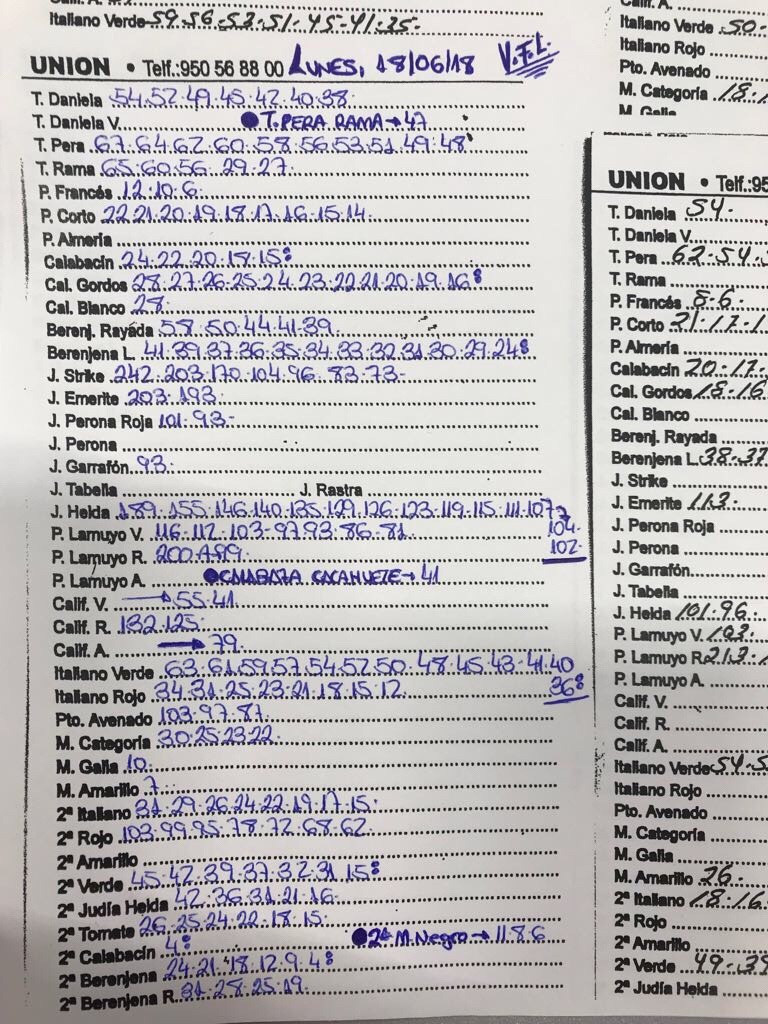 Italiano Verde 59.56.53.51.45-41.25.
UNION • Telf.:950 56 88 00 LUNES, 18/06/18 V.F.L.
T. Daniela 54.52.49.45.42.40.38.
T. Daniela V. ●T. PERA RAMA→47
T. Pera 67.64.62.60.58.56.53.51.49.48
T. Rama 65.60.56. 29.27.
P. Francés 12.10.6.
P. Corto 22.21.20.19.18.17.16.15.14.
P. Almería
Calabacín 24.22.20.18.15:
Cal. Gordos 28.27.26.25.24.23.22.21.20.19.16:
Cal. Blanco 28.
Berenj. Rayada 58.50.44.41.39.
Berenjena L. 41.39.37.36.35.34.33.32.31.30.29.24:
J. Strike 242.203.170.104.96.83.73.
J. Emerite 203.193.
J. Perona Roja 101.93.
J. Perona
J. Garrafón 93.
J. Tabella J. Rastra
J. Helda 189.155.146.140.135.129.126.123.119.115.111.107
104.
102.
P. Lamuyo V. 116.112.103.97.93.86.81.
P. Lamuyo R. 200.189.
P. Lamuyo A. ●CALABAZA CACAHUETE→41
Calif. V. →55.41.
Calif. R. 132.125.
Calif. A. →79.
Italiano Verde 63.61.59.57.54.52.50.48.45.43.41.40
36:
Italiano Rojo 34.31.25.23.21.18.15.12.
Pto. Avenado 103.97.87.
M. Categoría 30.25.23.22.
M. Galia 10.
M. Amarillo 7.
2ª Italiano 31.29.26.24.22.19.17.15.
2ª Rojo 103.99.95.78.72.68.62.
2ª Amarillo
2ª Verde 45.42.39.37.32.31.15:
2ª Judía Helda 42.36.31.21.16.
2ª Tomate 26.25.24.22.18.15.
2ª Calabacín 4: ●2ª M. Negro→11.8.6
2ª Berenjena 24.21.18.12.9.4:
2ª Berenjena R. 31.28.25.19.
Italiano Verde 50.
Italiano Rojo
Pto. Avenado
M. Categoría 18.
M. Galia
UNION • Telf.:95
T. Daniela 54.
T. Daniela V.
T. Pera 62.54.
T. Rama
P. Francés 8.6.
P. Corto 21.17.1
P. Almería
Calabacín 20.17.
Cal. Gordos 18.16
Cal. Blanco
Berenj. Rayada
Berenjena L. 38.37
J. Strike
J. Emerite 113.
J. Perona Roja
J. Perona
J. Garrafón
J. Tabella
J. Helda 101.96.
P. Lamuyo V. 103.
P. Lamuyo R. 213.
P. Lamuyo A.
Calif. V.
Calif. R.
Calif. A.
Italiano Verde 54.5
Italiano Rojo
Pto. Avenado
M. Categoría
M. Galia
M. Amarillo 26.
2ª Italiano 18.16.
2ª Rojo
2ª Amarillo
2ª Verde 49.39
2ª Judía Helda